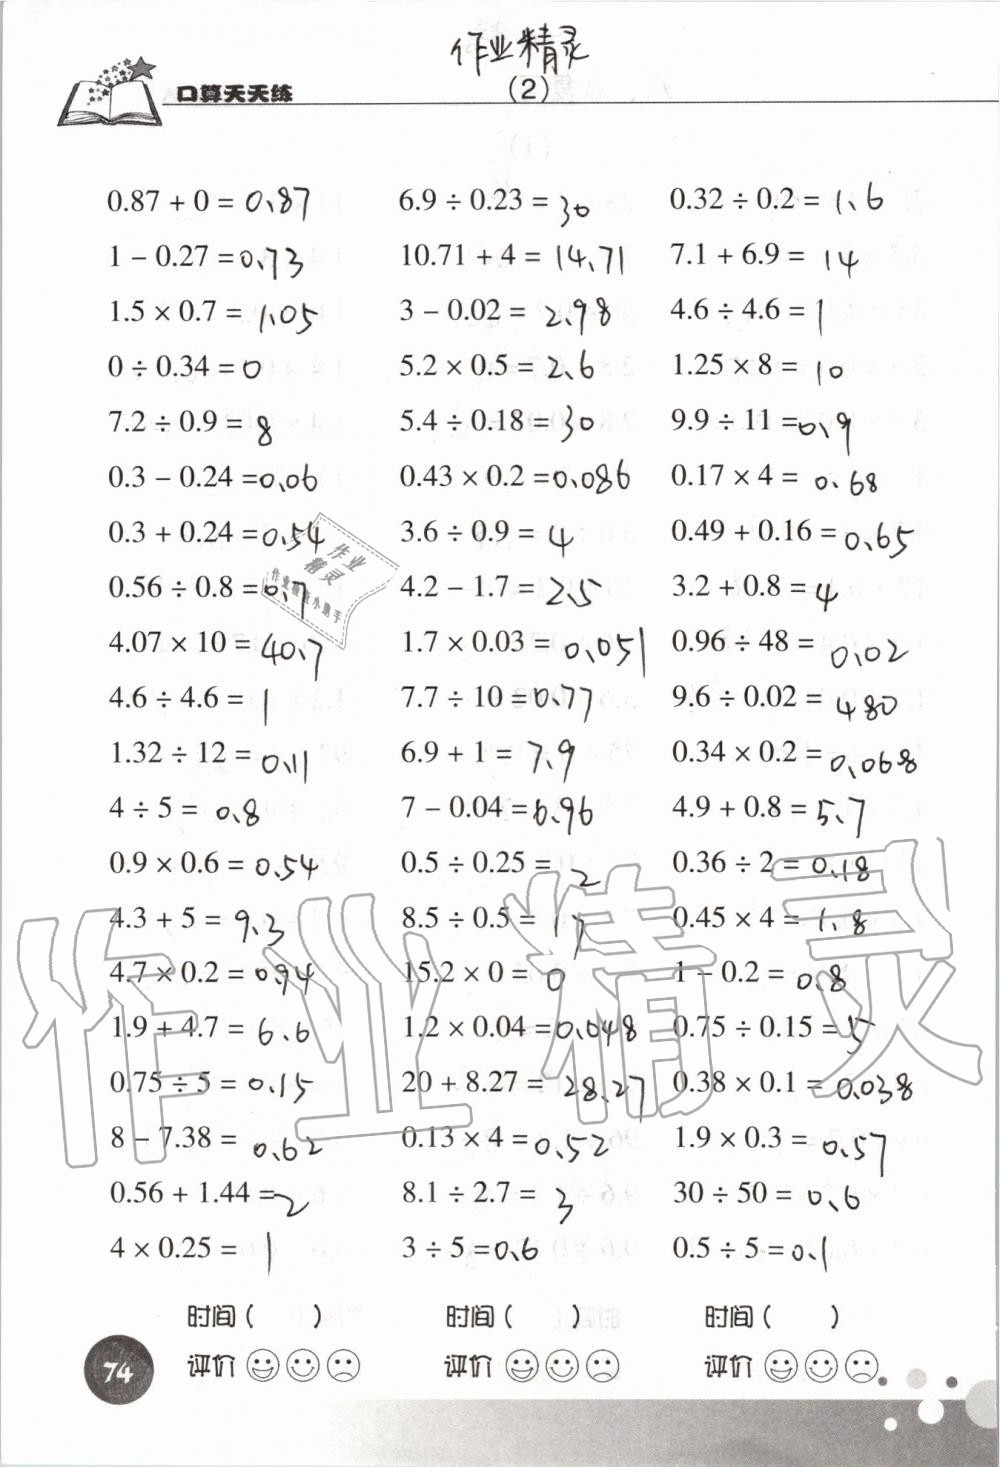 作业精灵
口算天天练
(2)
0.87 + 0 = 0.87 6.9 ÷ 0.23 = 30 0.32 ÷ 0.2 = 1.6
1 − 0.27 = 0.73 10.71 + 4 = 14.71 7.1 + 6.9 = 14
1.5 × 0.7 = 1.05 3 − 0.02 = 2.98 4.6 ÷ 4.6 = 1
0 ÷ 0.34 = 0 5.2 × 0.5 = 2.6 1.25 × 8 = 10
7.2 ÷ 0.9 = 8 5.4 ÷ 0.18 = 30 9.9 ÷ 11 = 0.9
0.3 − 0.24 = 0.06 0.43 × 0.2 = 0.086 0.17 × 4 = 0.68
0.3 + 0.24 = 0.54 3.6 ÷ 0.9 = 4 0.49 + 0.16 = 0.65
0.56 ÷ 0.8 = 0.7 4.2 − 1.7 = 2.5 3.2 + 0.8 = 4
4.07 × 10 = 40.7 1.7 × 0.03 = 0.051 0.96 ÷ 48 = 0.02
4.6 ÷ 4.6 = 1 7.7 ÷ 10 = 0.77 9.6 ÷ 0.02 = 480
1.32 ÷ 12 = 0.11 6.9 + 1 = 7.9 0.34 × 0.2 = 0.068
4 ÷ 5 = 0.8 7 − 0.04 = 6.96 4.9 + 0.8 = 5.7
0.9 × 0.6 = 0.54 0.5 ÷ 0.25 = 2 0.36 ÷ 2 = 0.18
4.3 + 5 = 9.3 8.5 ÷ 0.5 = 17 0.45 × 4 = 1.8
4.7 × 0.2 = 0.94 15.2 × 0 = 0 1 − 0.2 = 0.8
1.9 + 4.7 = 6.6 1.2 × 0.04 = 0.048 0.75 ÷ 0.15 = 5
0.75 ÷ 5 = 0.15 20 + 8.27 = 28.27 0.38 × 0.1 = 0.038
8 − 7.38 = 0.62 0.13 × 4 = 0.52 1.9 × 0.3 = 0.57
0.56 + 1.44 = 2 8.1 ÷ 2.7 = 3 30 ÷ 50 = 0.6
4 × 0.25 = 1 3 ÷ 5 = 0.6 0.5 ÷ 5 = 0.1
作业
精灵
作业精灵
时间( ) 时间( ) 时间( )
评价 评价 评价
74